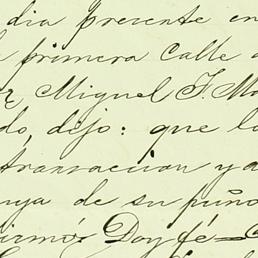 dia presente en
primera calle
Miguel F. Mo
do, dijo: que lo
transaccion y a
uya de su puño
firmó: Doy fé =